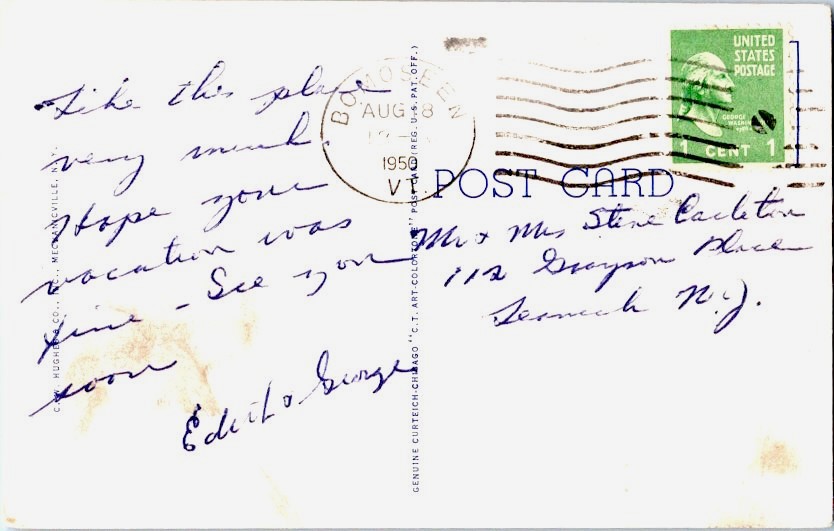 Like this place
very much.
Hope your
vacation was
fine - See you
soon
Edith & George
C. W. HUGHES & CO., INC., MECHANICVILLE, N.Y.
GENUINE CURTEICH-CHICAGO "C.T. ART-COLORTONE" POST CARD (REG. U.S. PAT. OFF.)
BOMOSEEN
AUG 8
1950
VT.
UNITED
STATES
POSTAGE
GEORGE
1 CENT 1
POST CARD
Mr & Mrs Steve Carleton
112 Grayson Place
Teaneck N.J.